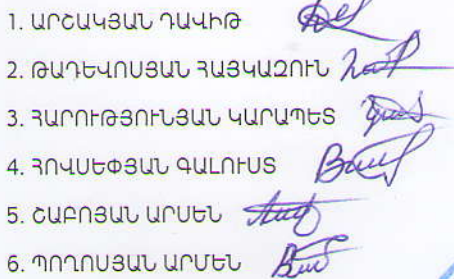 1. ԱՐՇԱԿՅԱՆ ԴԱՎԻԹ
2. ԹԱԴԵՎՈՍՅԱՆ ՀԱՅԿԱԶՈՒՆ
3. ՀԱՐՈՒԹՅՈՒՆՅԱՆ ԿԱՐԱՊԵՏ
4. ՀՈՎՍԵՓՅԱՆ ԳԱԼՈՒՍՏ
5. ՇԱԲՈՅԱՆ ԱՐՍԵՆ
6. ՊՈՂՈՍՅԱՆ ԱՐՄԵՆ